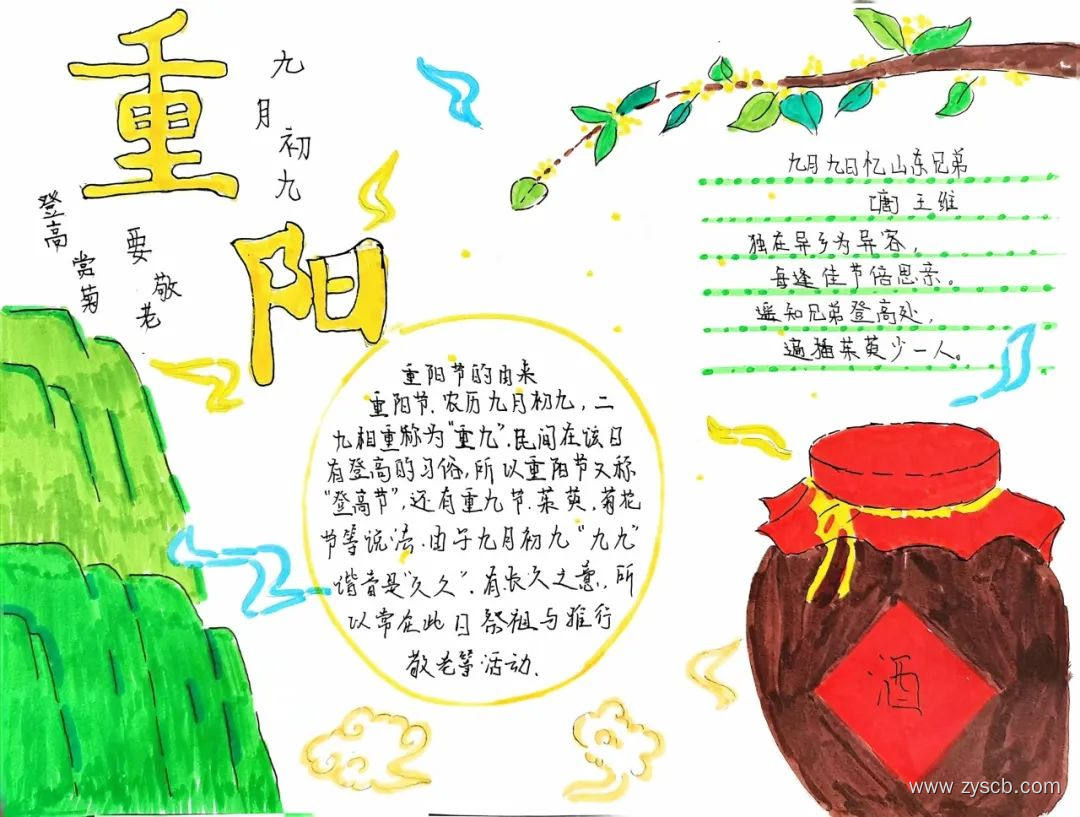 重阳
九月初九
登高
赏菊
要
敬老
九月九日忆山东兄弟
[唐] 王维
独在异乡为异客，
每逢佳节倍思亲。
遥知兄弟登高处，
遍插茱萸少一人。
重阳节的由来
重阳节、农历九月初九，二
九相重称为“重九”.民间在该日
有登高的习俗，所以重阳节又称
“登高节”，还有重九节、茱萸、菊花
节等说法.由于九月初九“九九”
谐音是“久久”.有长久之意，所
以常在此日祭祖与推行
敬老等活动.
酒
www.zyscb.com